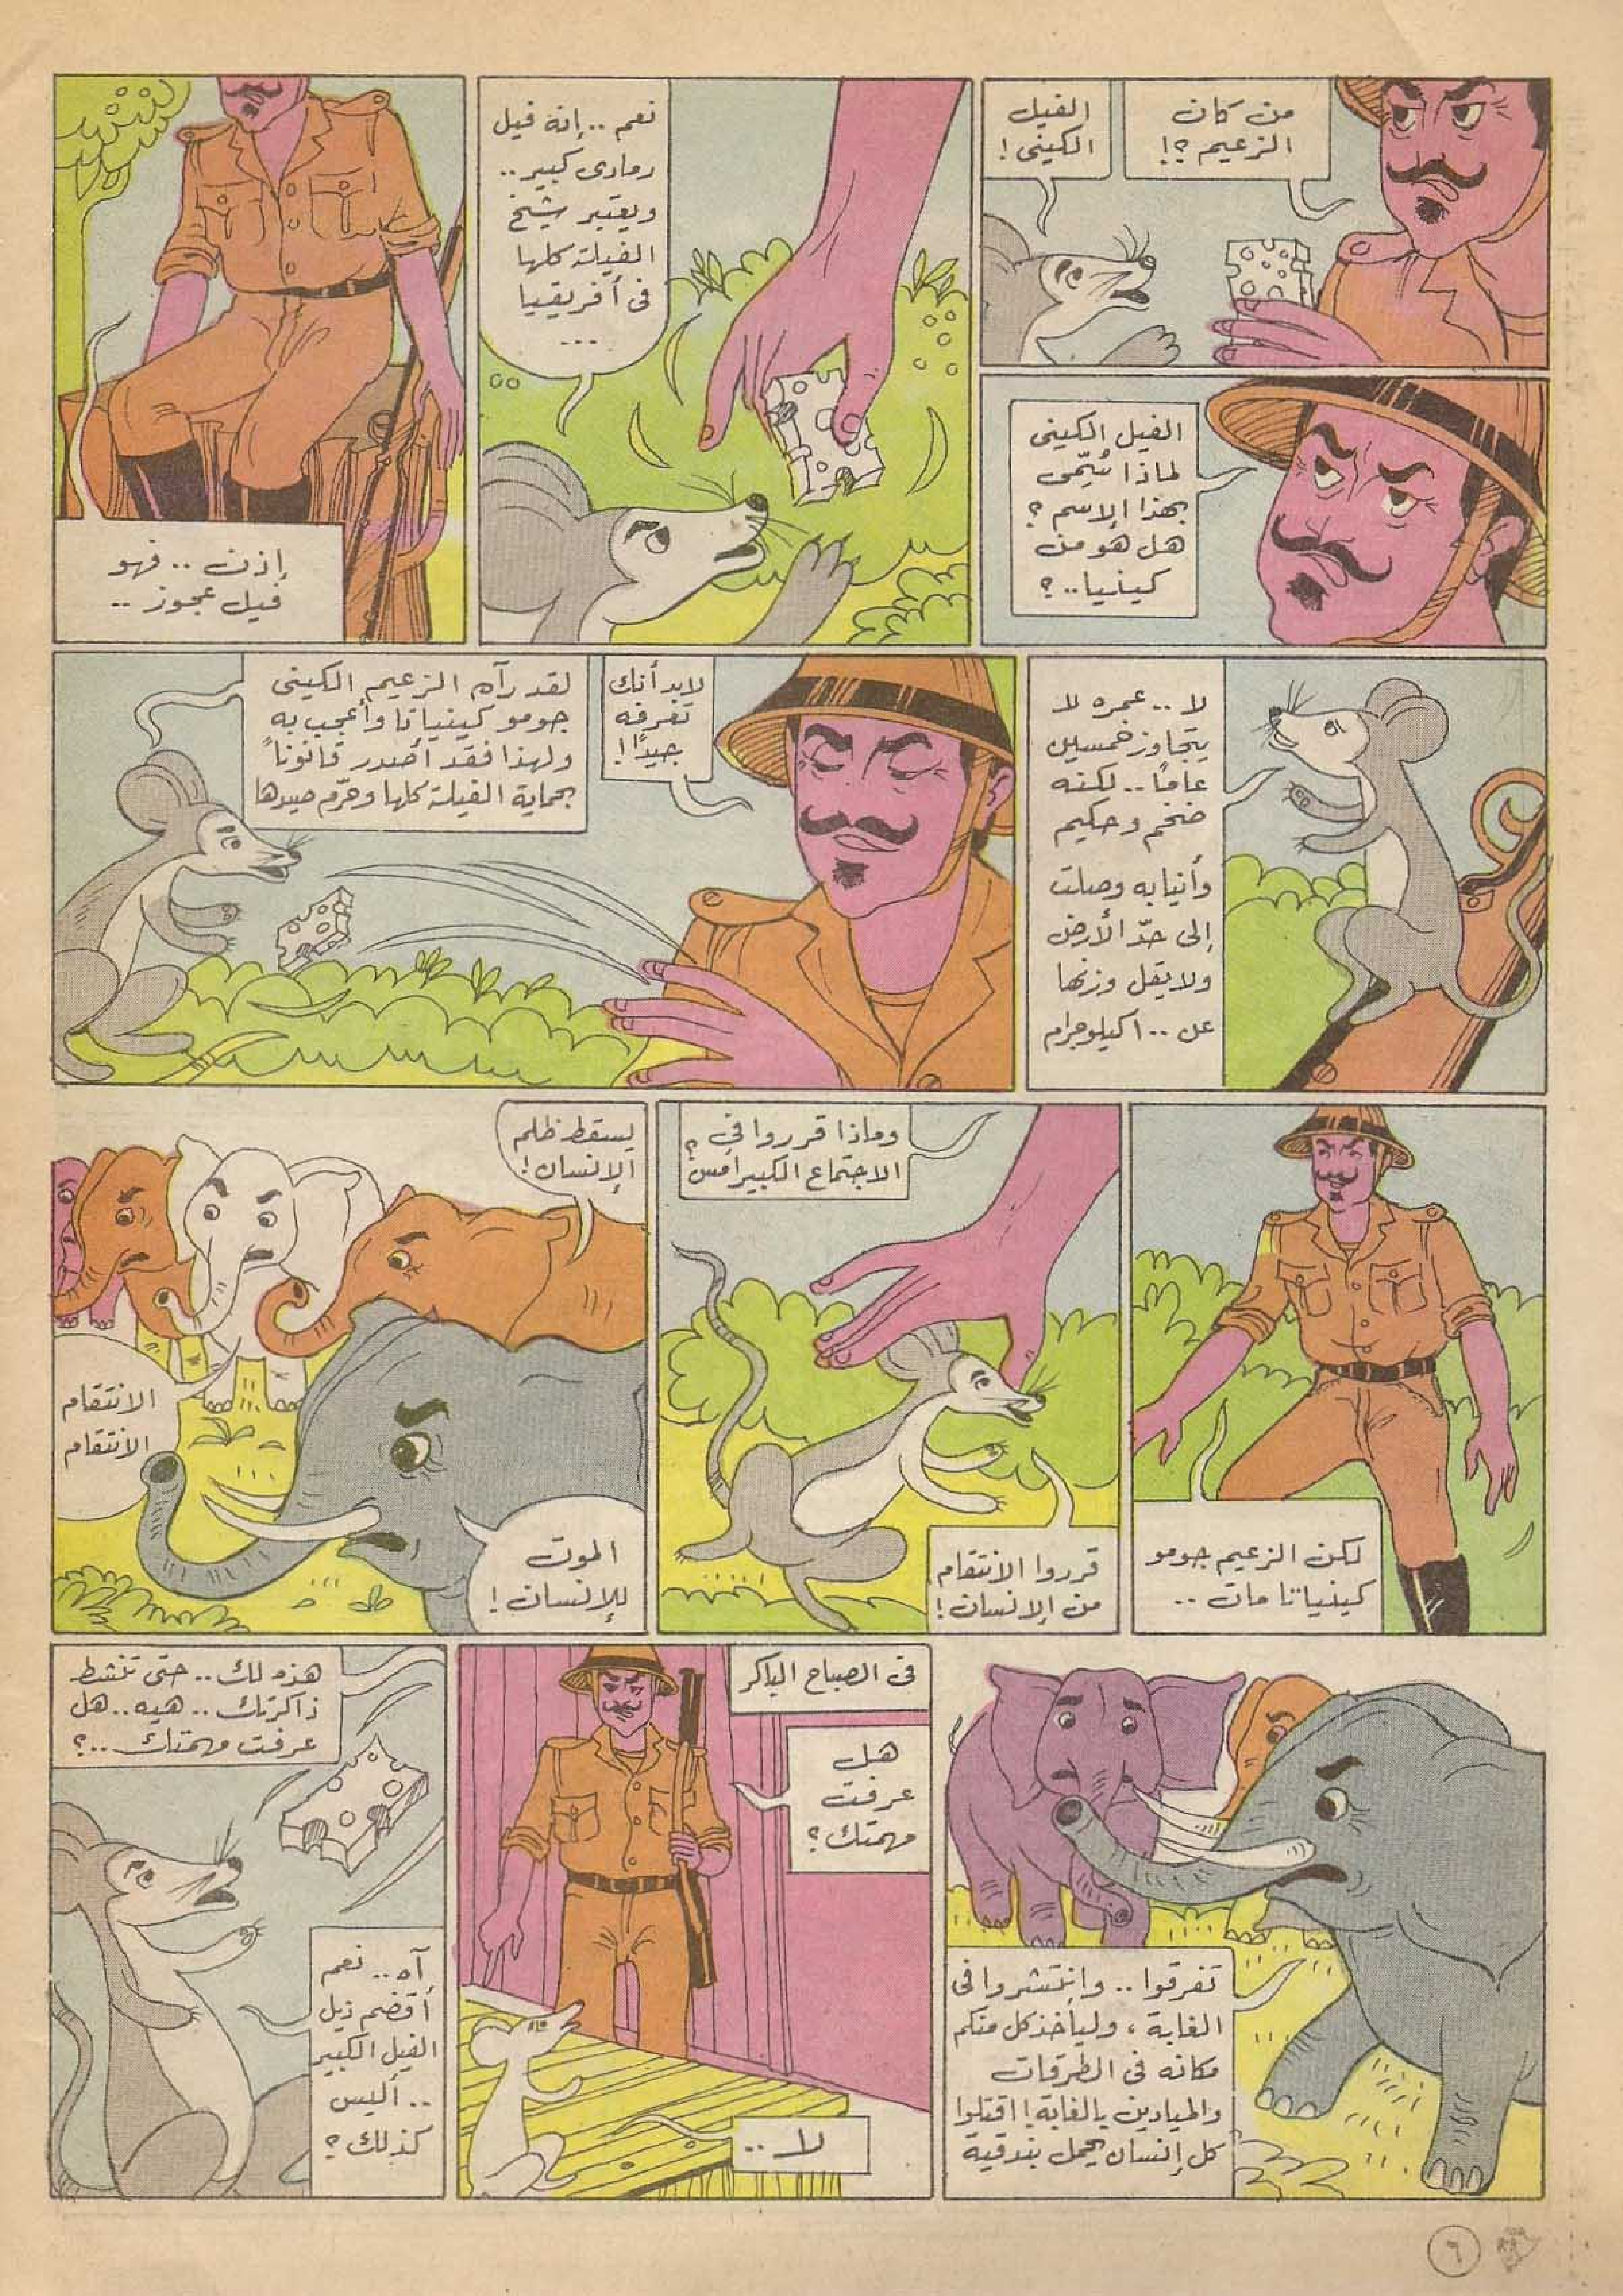 من كان
الزعيم ؟!
الفيل
الكينى !
الفيل الكينى
لماذا سُمّى
بهذا الإسم ؟
هل هو من
كينيا..؟
نعم .. إنه فيل
رمادى كبير..
ويعتبر شيخ
الفيلة كلها
فى أفريقيا
...
إذن .. فهو
فيل عجوز ..
لا .. عمره لا
يتجاوز خمسين
عامًا.. لكنه
ضخم وحكيم
وأنيابه وصلت
إلى حدّ الأرض
ولا يقل وزنها
عن ١٠٠ كيلوجرام
لابد أنك
تعرفه
جيدًا !
لقد رآه الزعيم الكينى
جومو كينياتا وأعجب به
ولهذا فقد أصدر قانوناً
بحماية الفيلة كلها وحرّم صيدها
لكن الزعيم جومو
كينياتا مات ..
وماذا قرروا فى
الاجتماع الكبير أمس ؟
قرروا الانتقام
من الإنسان !
يسقط ظلم
الإنسان !
الانتقام
الانتقام
الموت
للإنسان !
تفرقوا .. وانتشروا فى
الغابة ، وليأخذ كل منكم
مكانه فى الطرقات
والميادين بالغابة ! اقتلوا
كل إنسان يحمل بندقية
فى الصباح الباكر
هل
عرفت
مهمتك ؟
لا ..
هذه لك .. حتى تنشط
ذاكرتك .. هيه .. هل
عرفت مهمتك ..؟
آه .. نعم
أقضم ذيل
الفيل الكبير
.. أليس
كذلك ؟
٦